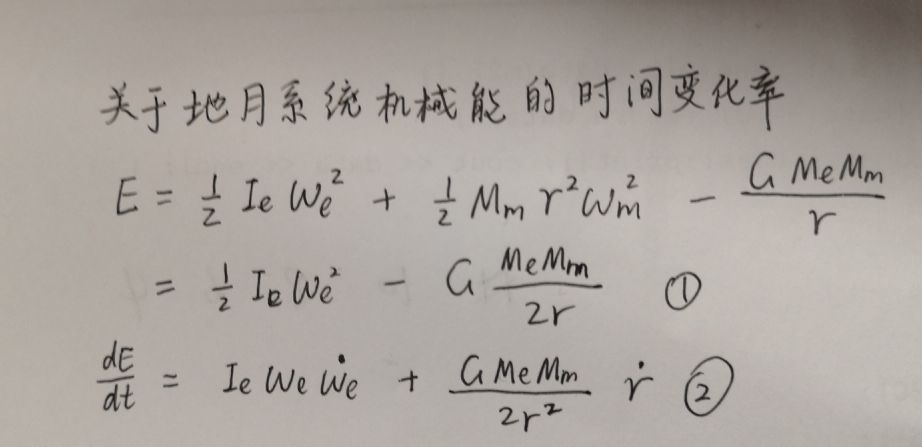 关于地月系统机械能的时间变化率
E = ½ Ie We² + ½ Mm r² ωm² − G Me Mm / r
= ½ Ie We² − G Me Mm / 2r ①
dE/dt = Ie We Ẇe + G Me Mm / 2r² ṙ ②